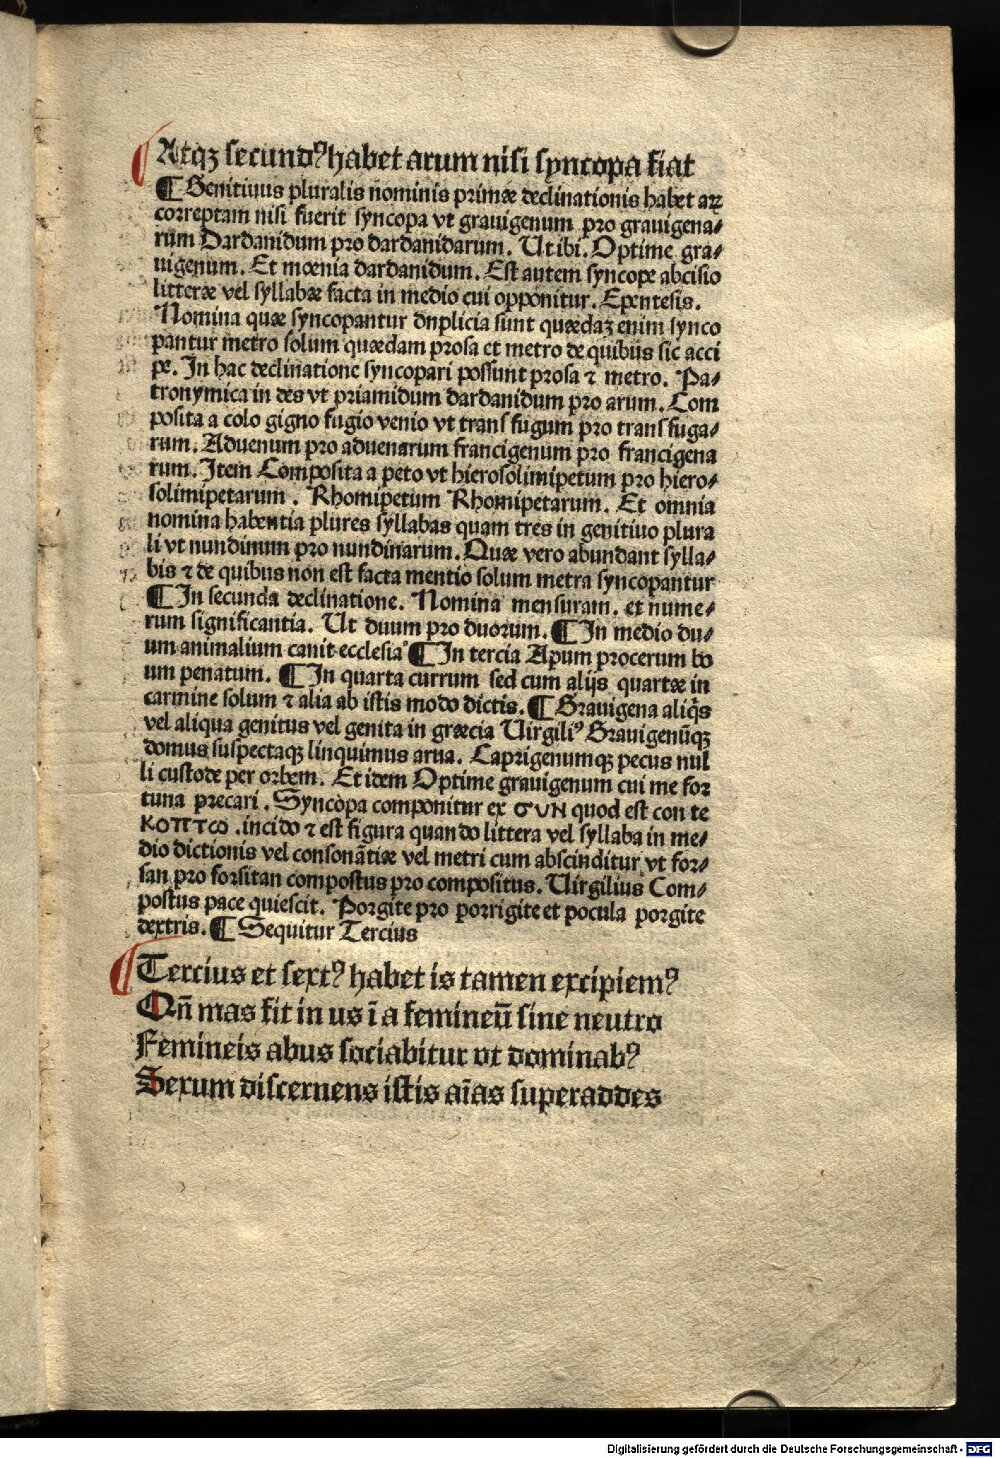 Atqꝫ secundꝰ habet arum nisi syncopa fiat
¶ Genitiuus pluralis nominis primæ declinationis habet aꝝ
correptam nisi fuerit syncopa vt grauigenum pro grauigena⸗
rum Dardanidum pro dardanidarum. Ut ibi. Optime gra⸗
uigenum. Et mœnia dardanidum. Est autem syncope abcisio
litteræ vel syllabæ facta in medio cui opponitur. Epentesis.
Nomina quæ syncopantur dnplicia sunt quædaꝫ enim synco
pantur metro solum quædam prosa et metro de quibus sic acci
pe. In hac declinatione syncopari possunt prosa ⁊ metro. Pa⸗
tronymica in des vt priamidum dardanidum pro arum. Com
posita a colo gigno fugio venio vt transfugum pro transfuga⸗
rum. Aduenum pro aduenarum francigenum pro francigena
rum. Item Composita a peto vt hierosolimipetum pro hiero⸗
solimipetarum. Rhomipetum Rhomipetarum. Et omnia
nomina habentia plures syllabas quam tres in genitiuo plura
li vt nundinum pro nundinarum. Quæ vero abundant sylla⸗
bis ⁊ de quibus non est facta mentio solum metra syncopantur
¶ In secunda declinatione. Nomina mensuram. et nume⸗
rum significantia. Ut duum pro duorum. ¶ In medio du⸗
um animalium canit ecclesia ¶ In tercia Apum procerum bo
um penatum. ¶ In quarta currum sed cum alijs quartæ in
carmine solum ⁊ alia ab istis modo dictis. ¶ Grauigena aliq̃s
vel aliqua genitus vel genita in græcia Uirgiliꝰ Grauigenũqꝫ
domus suspectaqꝫ linquimus arua. Caprigenumqꝫ pecus nul
li custode per orbem. Et idem Optime grauigenum cui me for
tuna precari. Syncopa componitur ex ϭυν quod est con te
κοπτω .incido ⁊ est figura quando littera vel syllaba in me⸗
dio dictionis vel consonãtiæ vel metri cum abscinditur vt for⸗
san pro forsitan compostus pro compositus. Uirgilius Com⸗
postus pace quiescit. Porgite pro porrigite et pocula porgite
dextris. ¶ Sequitur Tercius
Tercius et sextꝰ habet is tamen excipiemꝰ
Qñ mas fit in us ĩ a femineũ sine neutro
Femineis abus sociabitur vt dominabꝰ
Sexum discernens istis aĩas superaddes
Digitalisierung gefördert durch die Deutsche Forschungsgemeinschaft - DFG